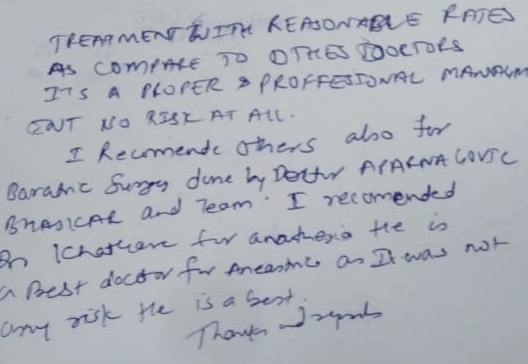 TREATMENT WITH REASONABLE RATES
AS COMPARE TO OTHES DOCTORS
ITS A PROPER & PROFFESIONAL MANAGM
ENT NO RISK AT ALL.
I Recomende others also for
Bariatric Surgey done by Docttor APARNA GOVIL
BHASKAR and Team. I recomended
Dr Khathare for anathesia He is
a Best doctor for as It was not
any risk He is a best.
Thanks and regards